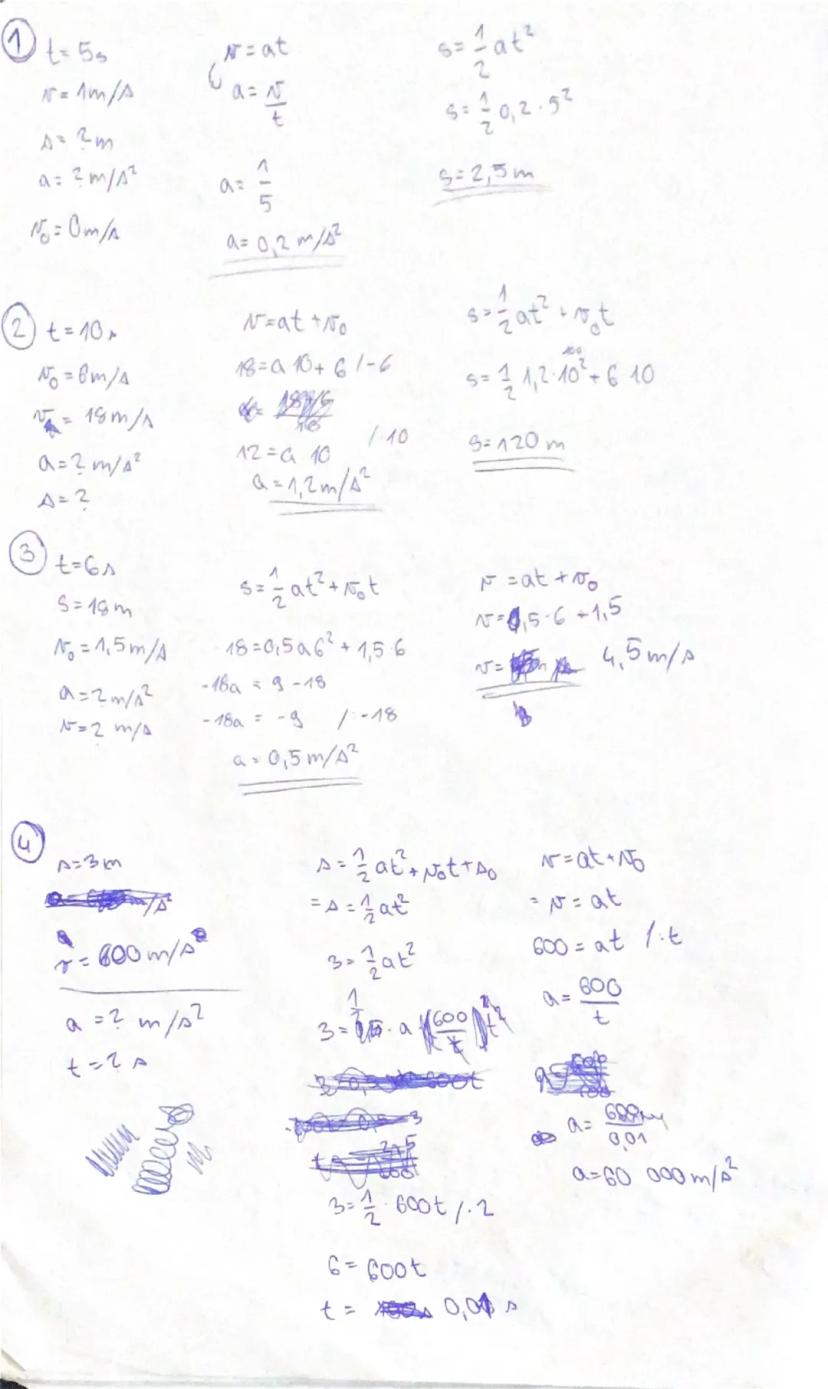 1
t = 5s
v = 1m/s
s = ?m
a = ?m/s²
v₀ = 0m/s
v = at
a = v/t
a = 1/5
a = 0,2 m/s²
s = 1/2 at²
s = 1/2 0,2 · 5²
s = 2,5m
2
t = 10s
v₀ = 6m/s
v = 18m/s
a = ? m/s²
s = ?
v = at + v₀
18 = a 10 + 6 /-6
12 = a 10 /:10
a = 1,2 m/s²
s = 1/2 at² + v₀t
s = 1/2 1,2 · 10² + 6 10
100
s = 120 m
3
t = 6s
s = 18m
v₀ = 1,5m/s
a = ? m/s²
v = ? m/s
s = 1/2 at² + v₀t
18 = 0,5a6² + 1,5 · 6
-18a = 9 - 18
-18a = -9 / -18
a = 0,5m/s²
v = at + v₀
v = 0,5 · 6 + 1,5
v = 4,5m/s
4
s = 3m
v = 600m/s
a = ? m/s²
t = ? s
s = 1/2 at² + v₀t + s₀
= s = 1/2 at²
3 = 1/2 at²
3 = 1/2 · a 600/t t²
3 = 1/2 · 600t /·2
6 = 600t
t = 0,01 s
v = at + v₀
= v = at
600 = at /:t
a = 600/t
a = 600/0,01
a = 60 000m/s²